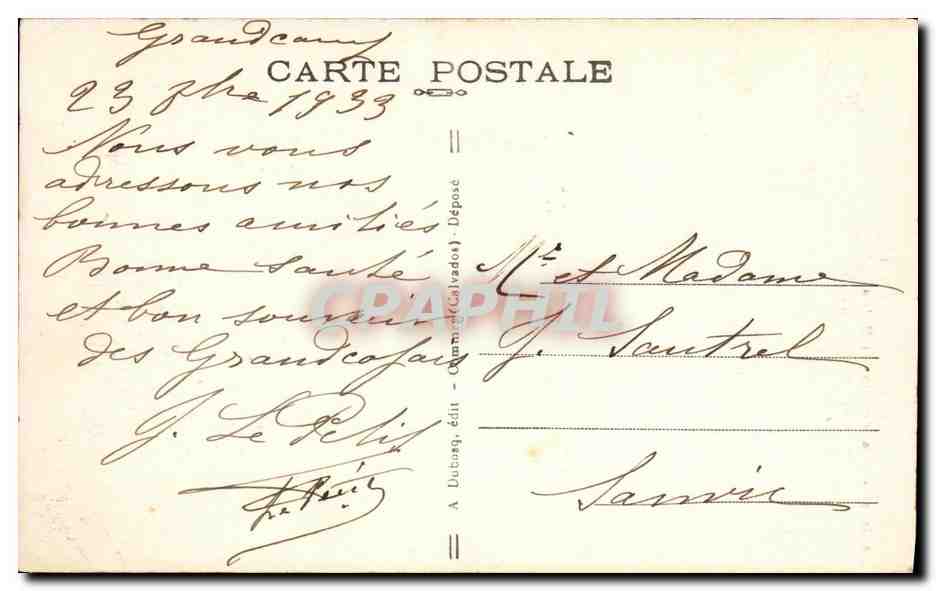 Grandcamp
CARTE POSTALE
23 7bre 1933
Nous vous
adressons nos
bonnes amitiés
Bonne santé
et bon souvenir
des Grandcopais
J. Le Petit
Le Petit
A Dubosq, édit - Commerce (Calvados) - Déposé
Mr et Madame
J. Sautrel
Sanvic
CPAPHIL